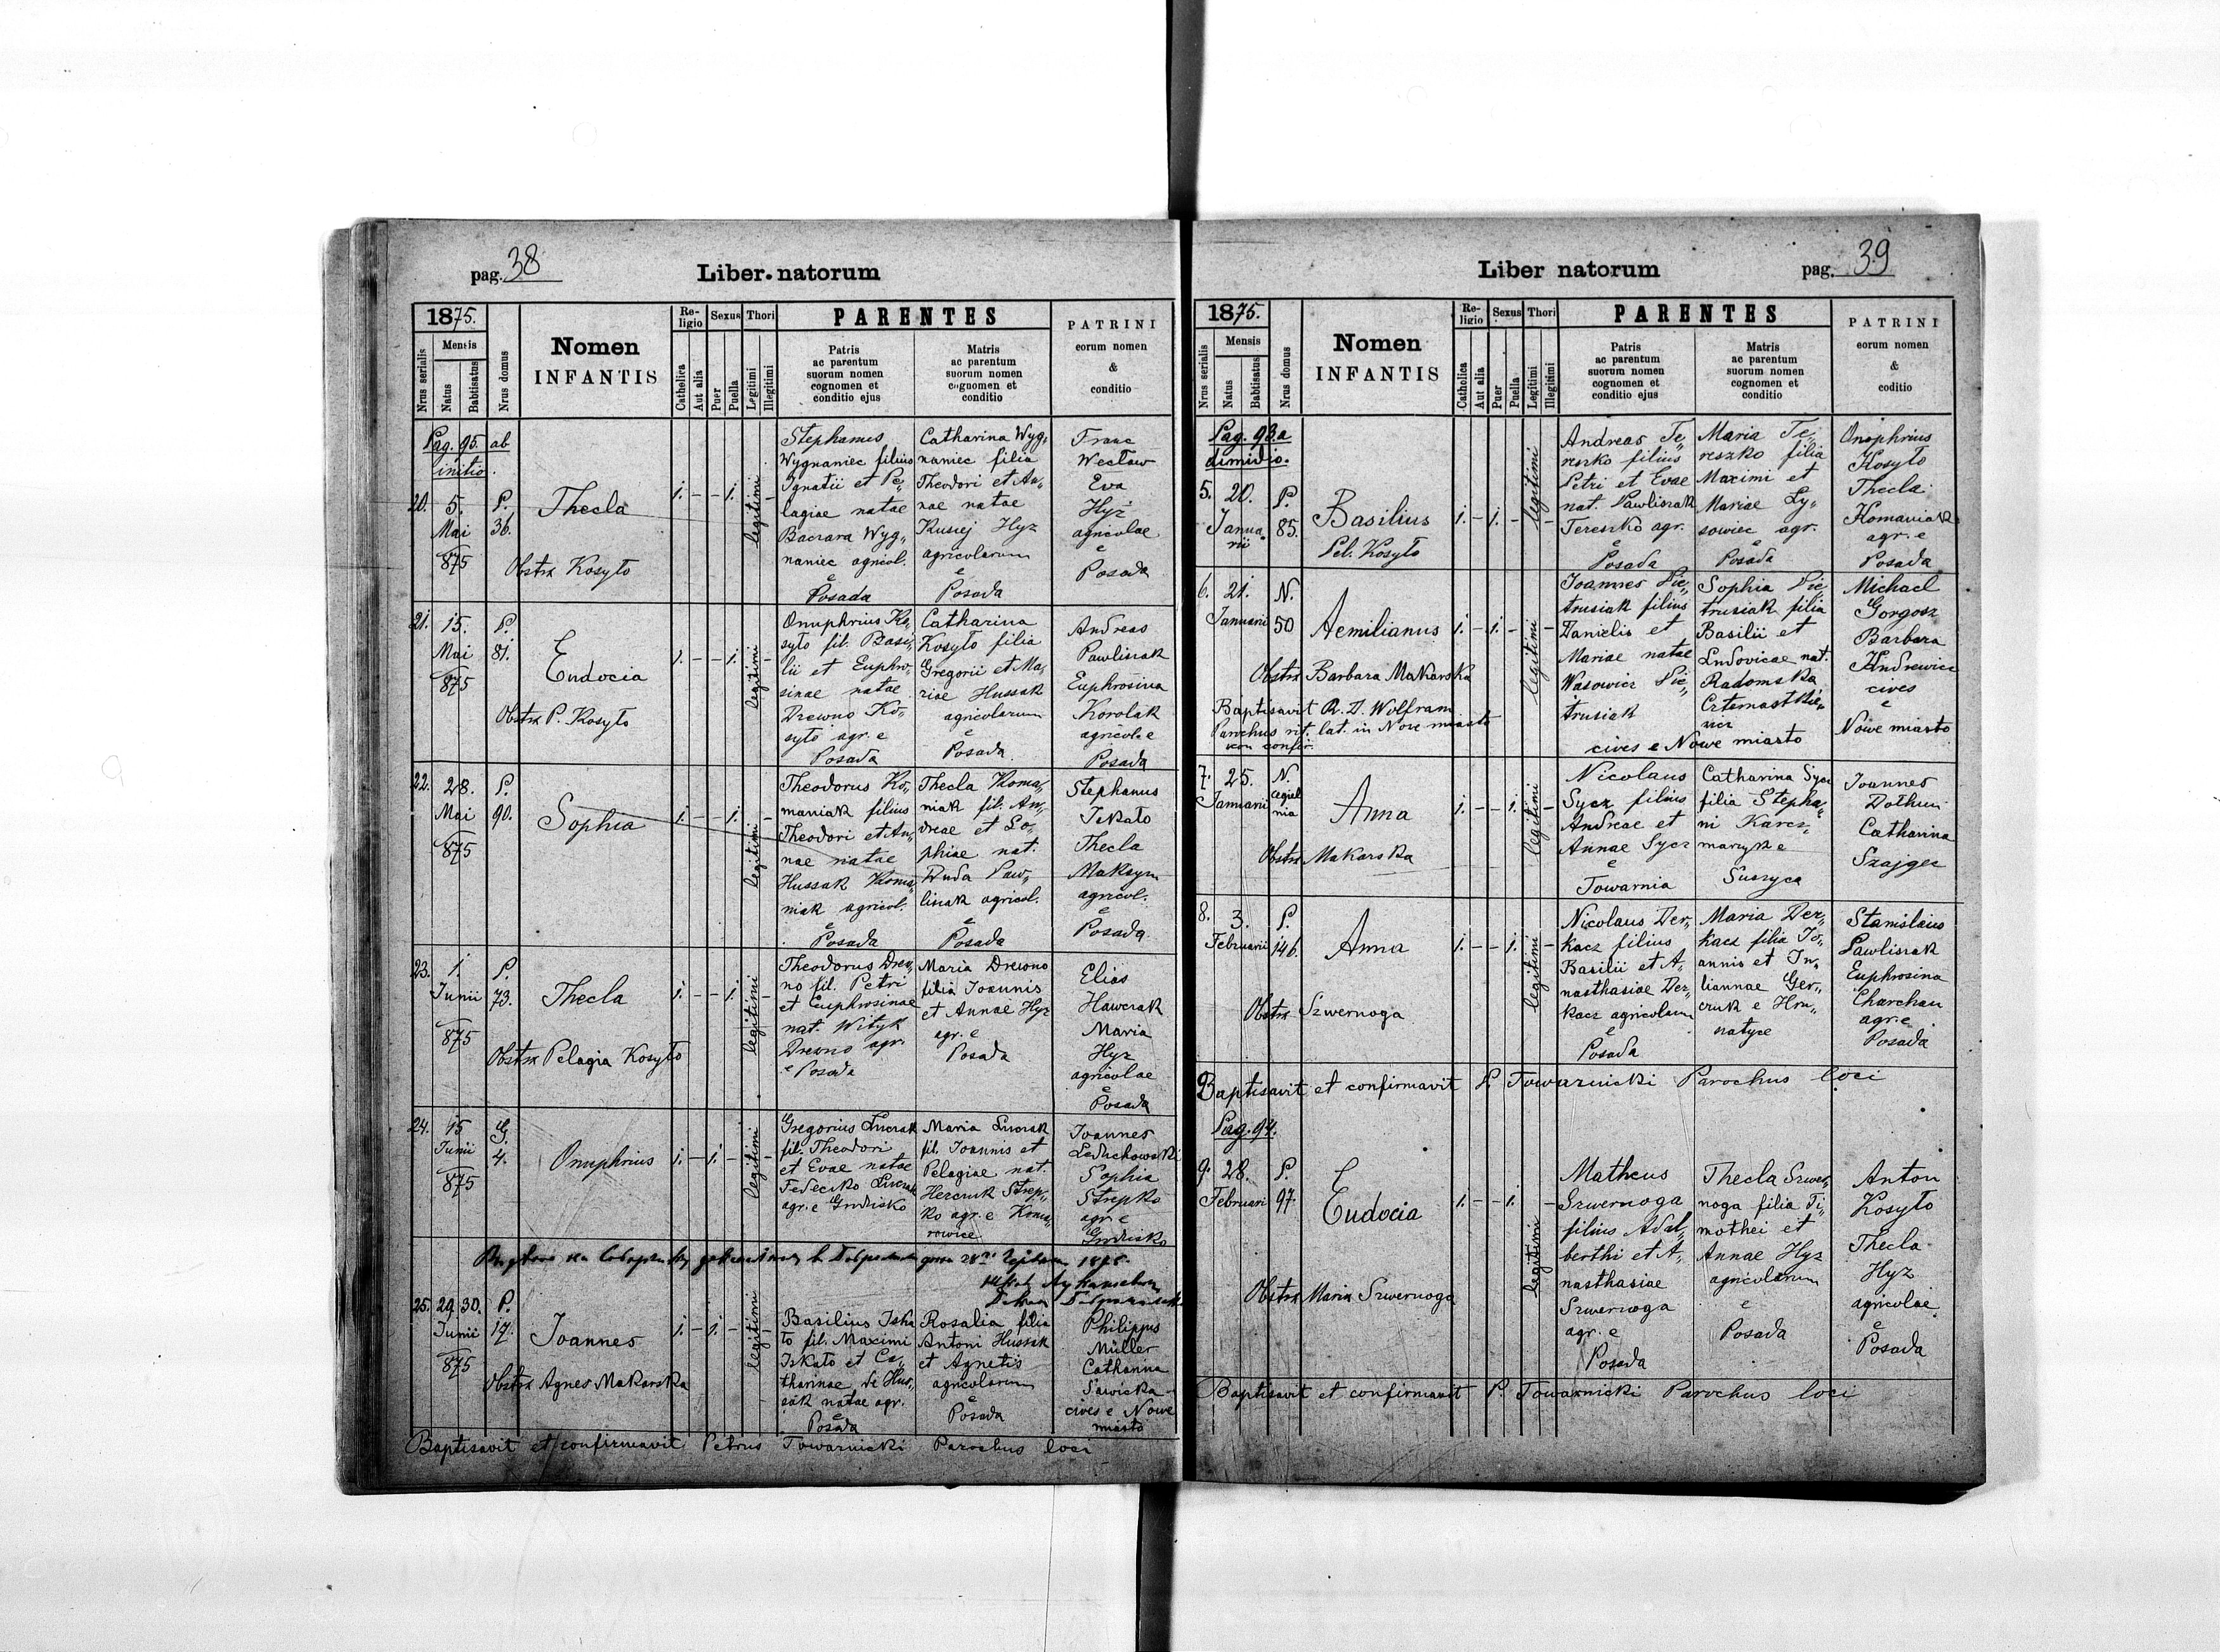 pag. 38
Liber natorum
1875.
Mensis
Nrus serialis
Natus
Babtisatus
Nrus domus
Nomen
INFANTIS
Religio
Catholica
Aut alia
Sexus
Puer
Puella
Thori
Legitimi
Illegitimi
PARENTES
Patris
ac parentum
suorum nomen
cognomen et
conditio ejus
Matris
ac parentum
suorum nomen
cognomen et
conditio
PATRINI
eorum nomen
&
conditio
Pag. 95. ab
initio.
20. 5. P.
Mai 36.
875
Thecla
Obstrx Kosyło
1. – – 1. legitimi –
Stephanus
Wygnaniec filius
Ignatii et Pe„
lagiae natae
Baczara Wyg„
naniec agricol.
e
Posada
Catharina Wyg„
naniec filia
Theodori et An„
nae natae
Kusiej Hyz
agricolarum
e
Posada
Franc
Wecław
Eva
Hyz
agricolae
e
Posada
21. 15. P.
Mai 81.
875
Eudocia
Obstrx P. Kosyło
1. – – 1. legitimi –
Onuphrius Ko„
syło fil. Basi„
lii et Euphro„
sinae natae
Drewno Ko„
syło agr. e
Posada
Catharina
Kosyło filia
Gregorii et Ma„
riae Hussak
agricolarum
e
Posada
Andreas
Pawliszak
Euphrosina
Korolak
agricol. e
Posada
22. 28. P.
Mai 90.
875
Sophia
1. – – 1. legitimi –
Theodorus Ko„
maniak filius
Theodori et An„
nae natae
Hussak Koma„
niak agricol.
e
Posada
Thecla Koma„
niak fil. An„
dreae et So„
phiae nat.
Duda Paw„
liszak agricol.
e
Posada
Stephanus
Iskało
Thecla
Maksym
agricol.
e
Posada
23. 1. P.
Junii 73.
875
Thecla
Obstrx Pelagia Kosyło
1. – – 1. legitimi –
Theodorus Drew„
no fil. Petri
et Euphrosinae
nat. Wityk
Drewno agr.
e Posada
Maria Drewno
filia Joannis
et Annae Hyz
agr. e
Posada
Elias
Hawczak
Maria
Hyz
agricolae
e
Posada
24. 15 G.
Junii 4.
875
Onuphrius
1. – 1. – legitimi –
Gregorius Luczak
fil. Theodori
et Evae natae
Fedeczko Luczak
agr. e Grodzisko
Maria Luczak
fil. Joannis et
Pelagiae nat.
Herczuk Strep„
ko agr. e Koma„
rowice
Joannes
Leduchowski
Sophia
Strepko
agr. e
Grodzisko
28 1875.
25. 29. 30. P.
Junii 17.
875
Joannes
Obstrx Agnes Makarska
1. – 1. – legitimi –
Basilius Iska
ło fil. Maximi
Iskało et Ca„
tharinae de Hus„
sak natae agr.
e
Posada
Rosalia filia
Antoni Hussak
et Agnetis
agricolarum
e
Posada
Philippus
Müller
Catharina
Sawicka
cives e Nowe
miasto
Baptisavit et confirmavit Petrus Towarnicki Parochus loci
Liber natorum
pag. 39
1875.
Mensis
Nrus serialis
Natus
Babtisatus
Nrus domus
Nomen
INFANTIS
Religio
Catholica
Aut alia
Sexus
Puer
Puella
Thori
Legitimi
Illegitimi
PARENTES
Patris
ac parentum
suorum nomen
cognomen et
conditio ejus
Matris
ac parentum
suorum nomen
cognomen et
conditio
PATRINI
eorum nomen
&
coditio
Pag. 93. a
dimidio.
5. 20. P.
Janua„ 85.
rii
Basilius
Pel. Kosyło
1. – 1. – legitimi –
Andreas Te„
reszko filius
Petri et Evae
nat. Pawliszak
Tereszko agr.
e
Posada
Maria Te„
reszko filia
Maximi et
Mariae Ly„
sowiec agr.
e
Posada
Onophrius
Kosyło
Thecla
Komaniak
agr. e
Posada
6. 21. N.
Januarii 50
Aemilianus
Obstrx Barbara Makarska
Baptisavit R. D. Wolfram
Parochus rit. lat. in Nowe miasto
non confir.
1. – 1. – legitimi –
Joannes Pie„
trusiak filius
Danielis et
Mariae natae
Wasowicz Pie„
trusiak
Sophia Pie„
trusiak filia
Basilii et
Ludovicae nat.
Radomska
Czternastkie„
wicz
cives e Nowe miasto
Michael
Gorgosz
Barbara
Andrewicz
cives
e
Nowe miasto
7. 25. N.
Januarii cegiel
nia
Anna
Obstrx Makarska
1. – – 1. legitimi –
Nicolaus
Sycz filius
Andreae et
Annae Sycz
e
Towarnia
Catharina Sycz
filia Stepha„
ni Karcz„
maryk e
Suszyca
Joannes
Dothun
Catharina
Szajgec
8. 3. P.
Februarii 146.
Anna
Obstrx Szwernoga
1. – – 1. legitimi –
Nicolaus Der„
kacz filius
Basilii et A„
nasthasiae Der„
kacz agricolarum
e
Posada
Maria Der„
kacz filia Jo„
annis et Ju„
liannae Ger„
czuk e Hru„
natyce
Stanislaus
Pawliszak
Euphrosina
Charchan
agr. e
Posada
Baptisavit et confirmavit P. Towarnicki Parochus loci
Pag. 94.
9. 28. P.
Februari 97.
Eudocia
Obstrx Maria Szwernoga
1. – – 1. legitimi –
Matheus
Szwernoga
filius Adal„
berthi et A„
nasthasiae
Szwernoga
agr. e
Posada
Thecla Szwer„
noga filia Ti„
mothei et
Annae Hyz
agricolarum
e
Posada
Anton
Kosyło
Thecla
Hyz
agricolae
e
Posada
Baptisavit et confirmavit P. Towarnicki Parochus loci